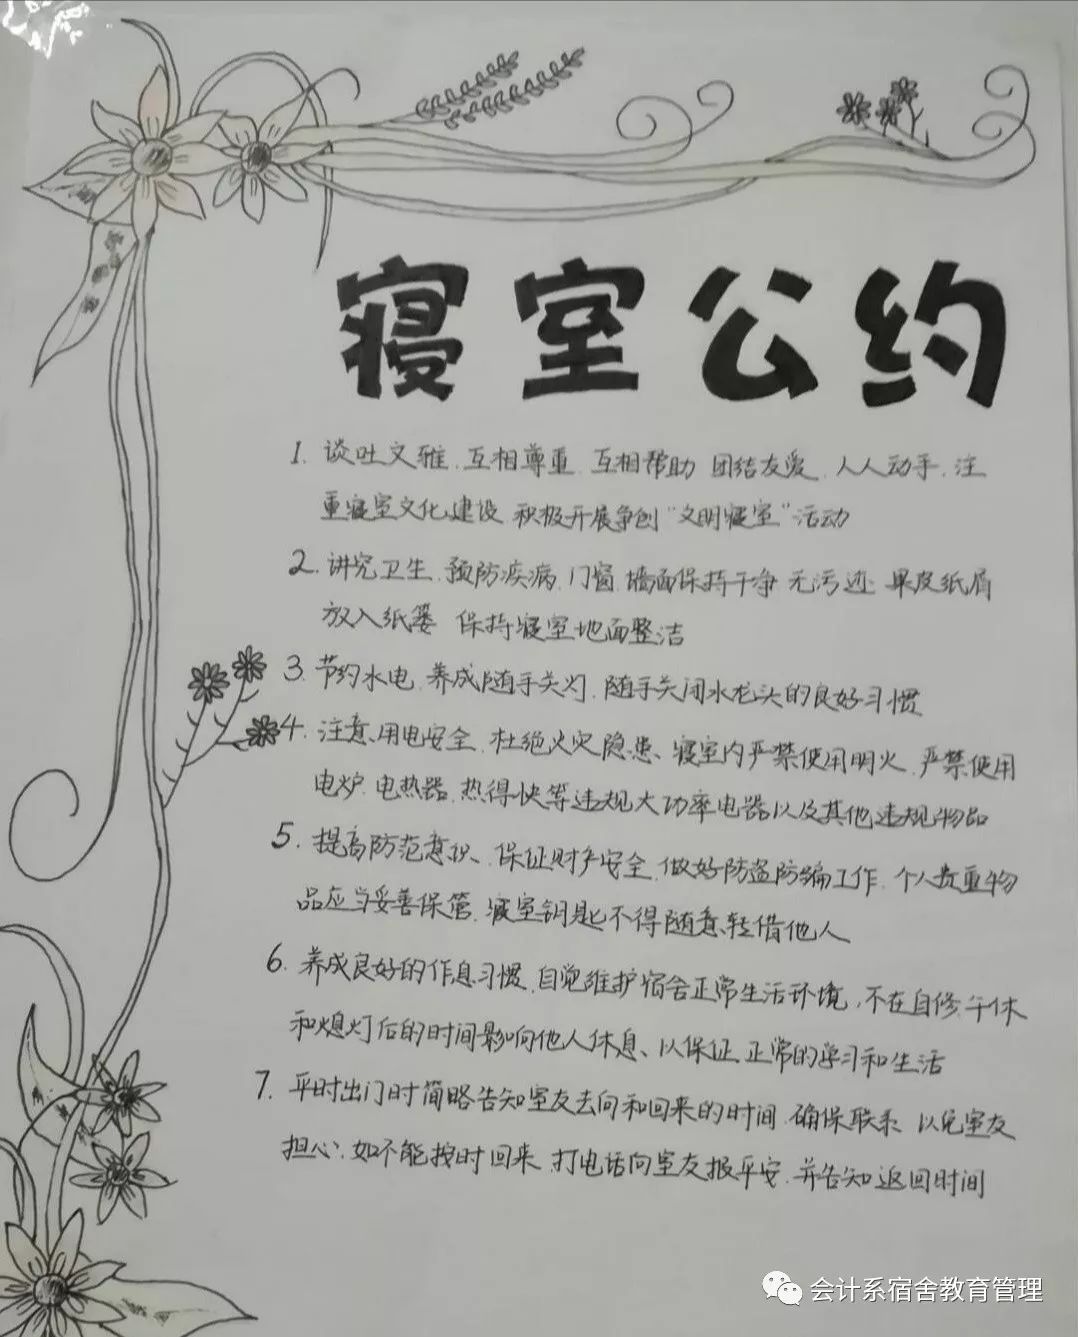 寝室公约
1. 谈吐文雅、互相尊重、互相帮助 团结友爱、人人动手、注
重寝室文化建设 积极开展争创“文明寝室”活动
2. 讲究卫生、预防疾病、门窗、墙面保持干净 无污迹 果皮纸屑
放入纸篓 保持寝室地面整洁
3. 节约水电、养成随手关灯、随手关闭水龙头的良好习惯
4. 注意用电安全、杜绝火灾隐患、寝室内严禁使用明火、严禁使用
电炉、电热器、热得快等违规大功率电器以及其他违规物品
5. 提高防范意识、保证财产安全、做好防盗防骗工作、个人贵重物
品应当妥善保管、寝室钥匙不得随意转借他人
6. 养成良好的作息习惯、自觉维护宿舍正常生活环境、不在自修、午休
和熄灯后的时间影响他人休息、以保证正常的学习和生活
7. 平时出门时简略告知室友去向和回来的时间、确保联系 以免室友
担心；如不能按时回来、打电话向室友报平安、并告知返回时间
会计系宿舍教育管理